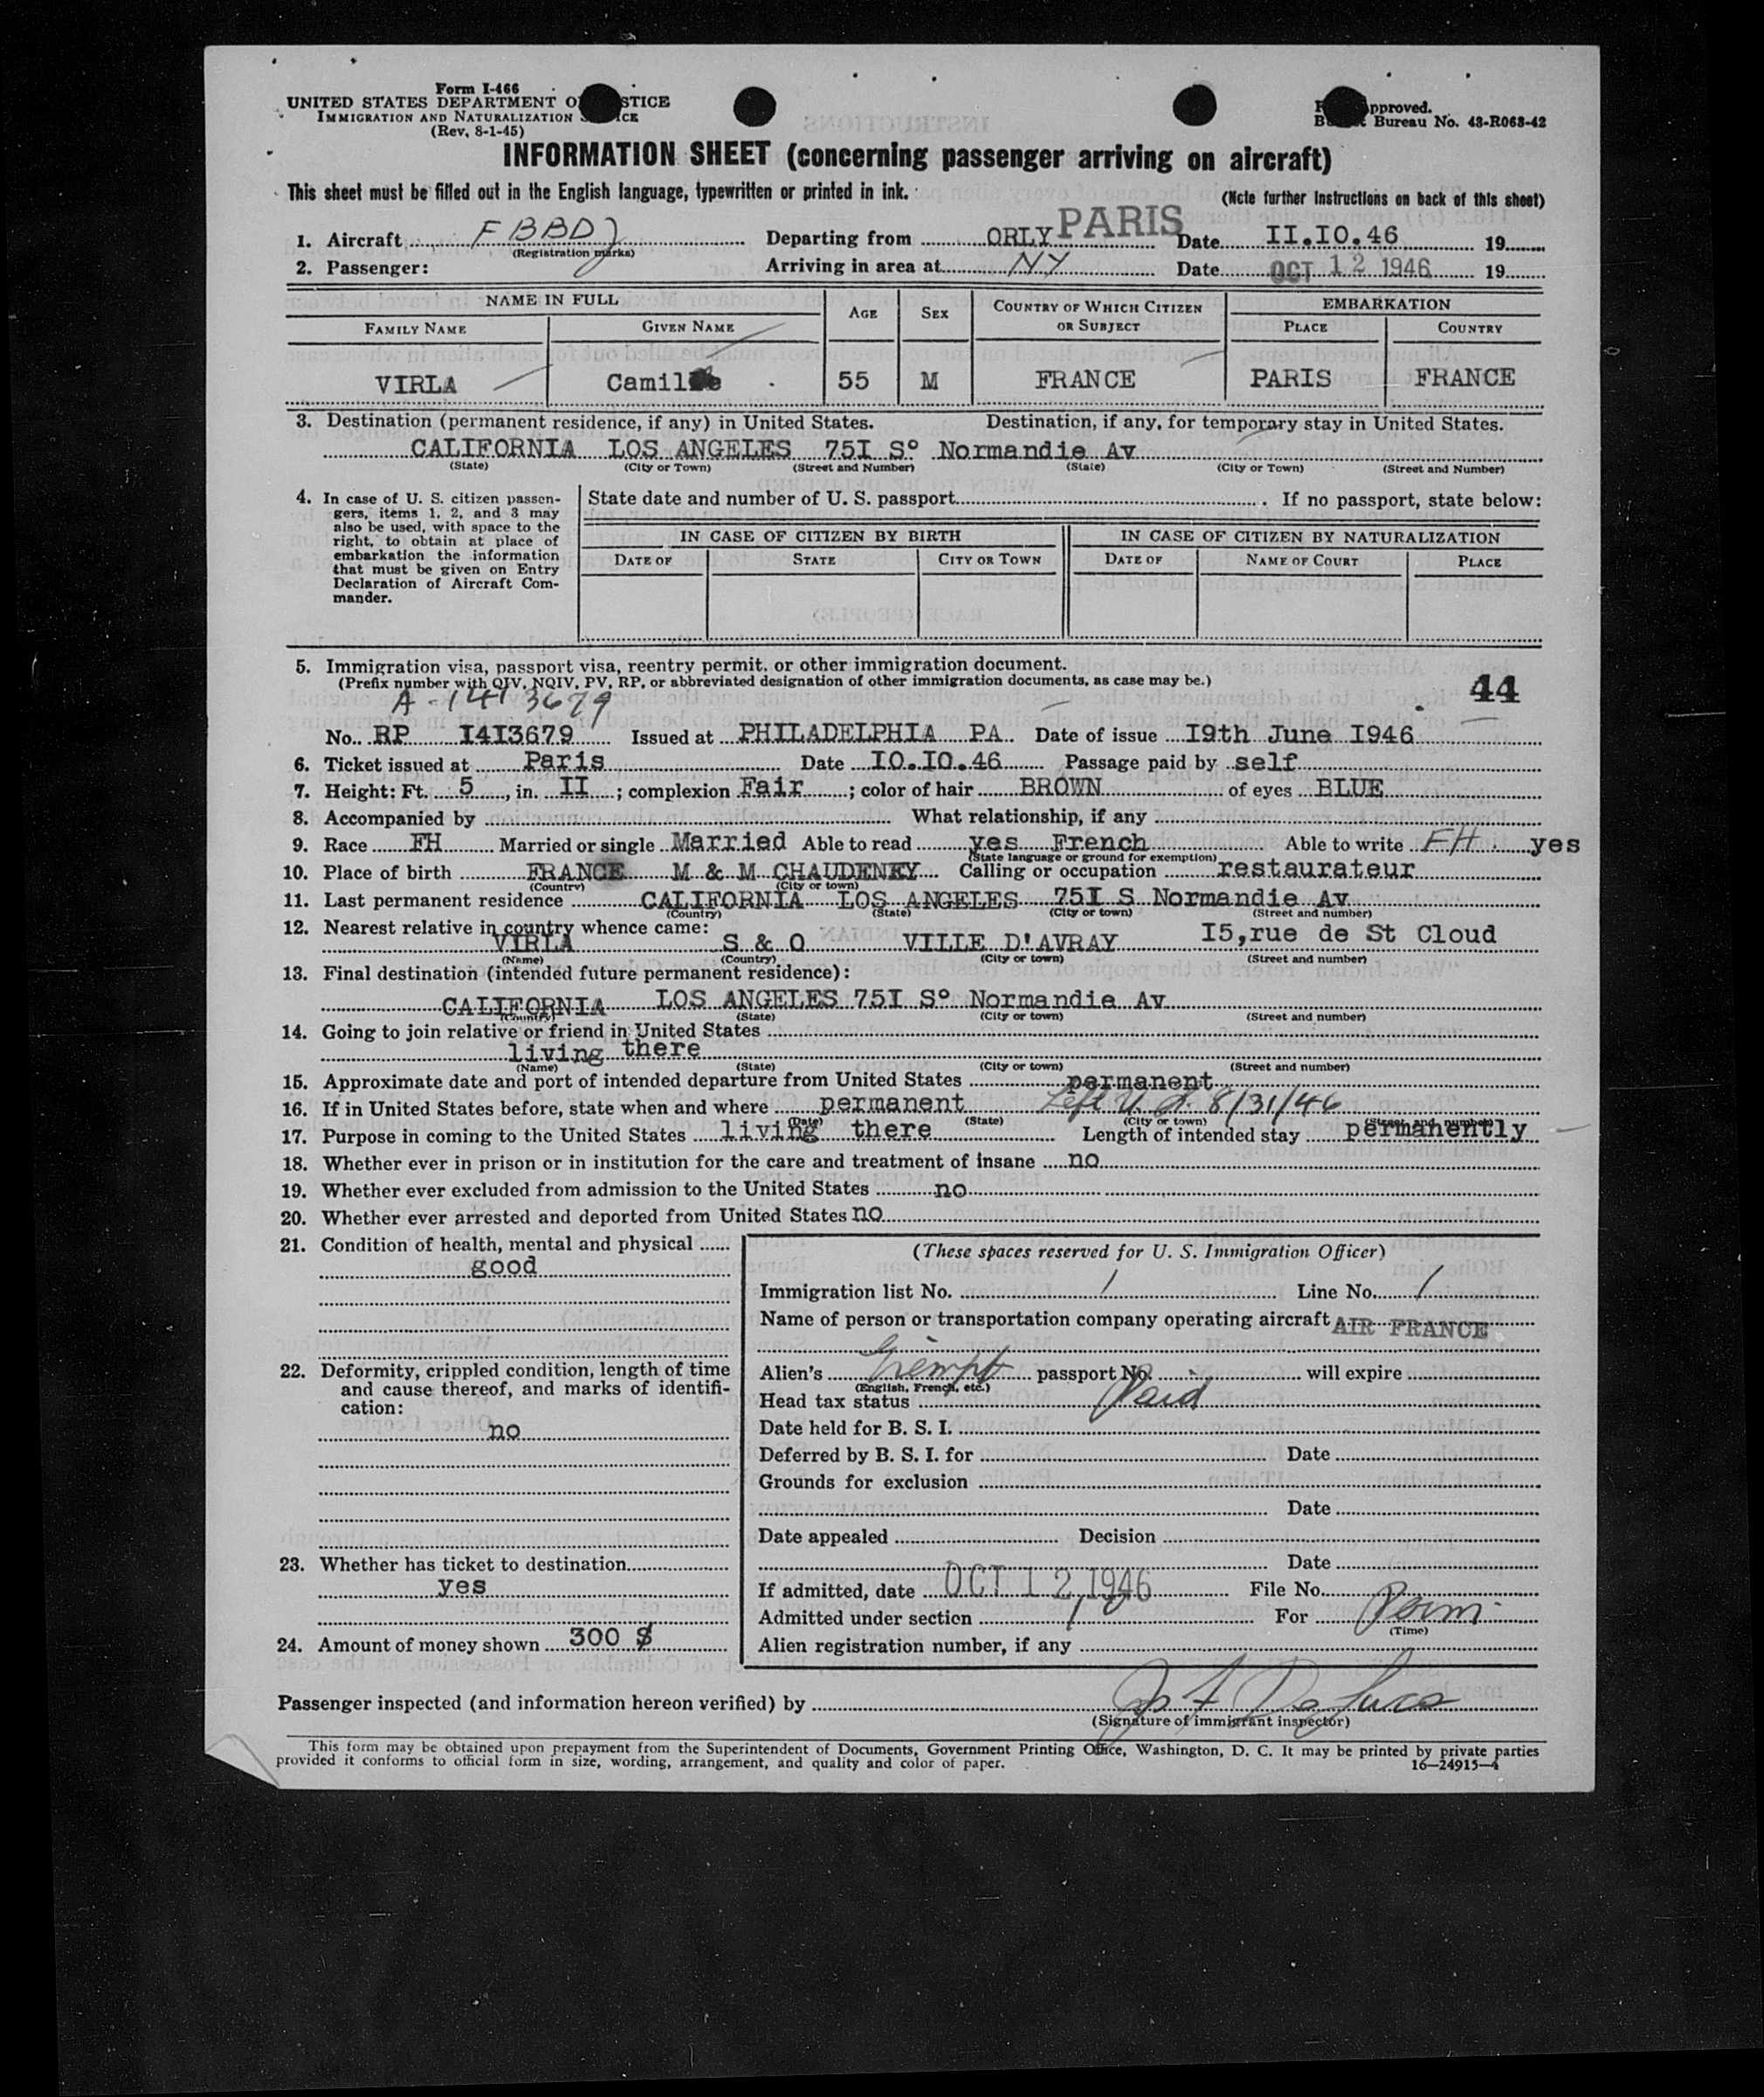 Form I-466
UNITED STATES DEPARTMENT O STICE
IMMIGRATION AND NATURALIZATION CE
(Rev. 8-1-45)
pproved.
Bureau No. 43-R063-42
INFORMATION SHEET (concerning passenger arriving on aircraft)
This sheet must be filled out in the English language, typewritten or printed in ink.
(Note further instructions on back of this sheet)
1. Aircraft F BBDJ Departing from ORLY PARIS Date II.IO.46 19
(Registration marks)
2. Passenger: Arriving in area at NY Date OCT 12 1946 19
NAME IN FULL AGE SEX COUNTRY OF WHICH CITIZEN OR SUBJECT EMBARKATION
FAMILY NAME GIVEN NAME PLACE COUNTRY
VIRLA Camil e 55 M FRANCE PARIS FRANCE
3. Destination (permanent residence, if any) in United States. Destination, if any, for temporary stay in United States.
CALIFORNIA LOS ANGELES 75I S° Normandie Av
(State) (City or Town) (Street and Number) (State) (City or Town) (Street and Number)
4. In case of U. S. citizen passen-
gers, items 1, 2, and 3 may
also be used, with space to the
right, to obtain at place of
embarkation the information
that must be given on Entry
Declaration of Aircraft Com-
mander.
State date and number of U. S. passport. If no passport, state below:
IN CASE OF CITIZEN BY BIRTH IN CASE OF CITIZEN BY NATURALIZATION
DATE OF STATE CITY OR TOWN DATE OF NAME OF COURT PLACE
5. Immigration visa, passport visa, reentry permit, or other immigration document.
(Prefix number with QIV, NQIV, PV, RP, or abbreviated designation of other immigration documents, as case may be.)
44
A-1413679
No. RP I4I3679 Issued at PHILADELPHIA PA Date of issue I9th June I946
6. Ticket issued at Paris Date IO.IO.46 Passage paid by self
7. Height: Ft. 5, in. II; complexion Fair; color of hair BROWN of eyes BLUE
8. Accompanied by What relationship, if any
9. Race FH Married or single Married Able to read yes French Able to write FH yes
(State language or ground for exemption)
10. Place of birth FRANCE M & M CHAUDENEY Calling or occupation restaurateur
(Country) (City or town)
11. Last permanent residence CALIFORNIA LOS ANGELES 75I S Normandie Av
(Country) (State) (City or town) (Street and number)
12. Nearest relative in country whence came:
VIRLA S & O VILLE D'AVRAY I5,rue de St Cloud
(Name) (Country) (City or town) (Street and number)
13. Final destination (intended future permanent residence):
CALIFORNIA LOS ANGELES 75I S° Normandie Av
(Country) (State) (City or town) (Street and number)
14. Going to join relative or friend in United States
living there
(Name) (State) (City or town) (Street and number)
15. Approximate date and port of intended departure from United States permanent
16. If in United States before, state when and where permanent Left U. S. 8/31/46
(Date) (State) (City or town) (Street and number)
17. Purpose in coming to the United States living there Length of intended stay permanently
18. Whether ever in prison or in institution for the care and treatment of insane no
19. Whether ever excluded from admission to the United States no
20. Whether ever arrested and deported from United States no
21. Condition of health, mental and physical
good
22. Deformity, crippled condition, length of time
and cause thereof, and marks of identifi-
cation:
no
23. Whether has ticket to destination
yes
24. Amount of money shown 300 $
(These spaces reserved for U. S. Immigration Officer)
Immigration list No. 1 Line No. 1
Name of person or transportation company operating aircraft AIR FRANCE
Alien's Exempt passport No. will expire
(English, French, etc.)
Head tax status Paid
Date held for B. S. I.
Deferred by B. S. I. for Date
Grounds for exclusion
Date
Date appealed Decision
Date
If admitted, date OCT 12 1946 File No.
Admitted under section For Perm.
(Time)
Alien registration number, if any
Passenger inspected (and information hereon verified) by
(Signature of immigrant inspector)
This form may be obtained upon prepayment from the Superintendent of Documents, Government Printing Office, Washington, D. C. It may be printed by private parties
provided it conforms to official form in size, wording, arrangement, and quality and color of paper. 16—24915—4